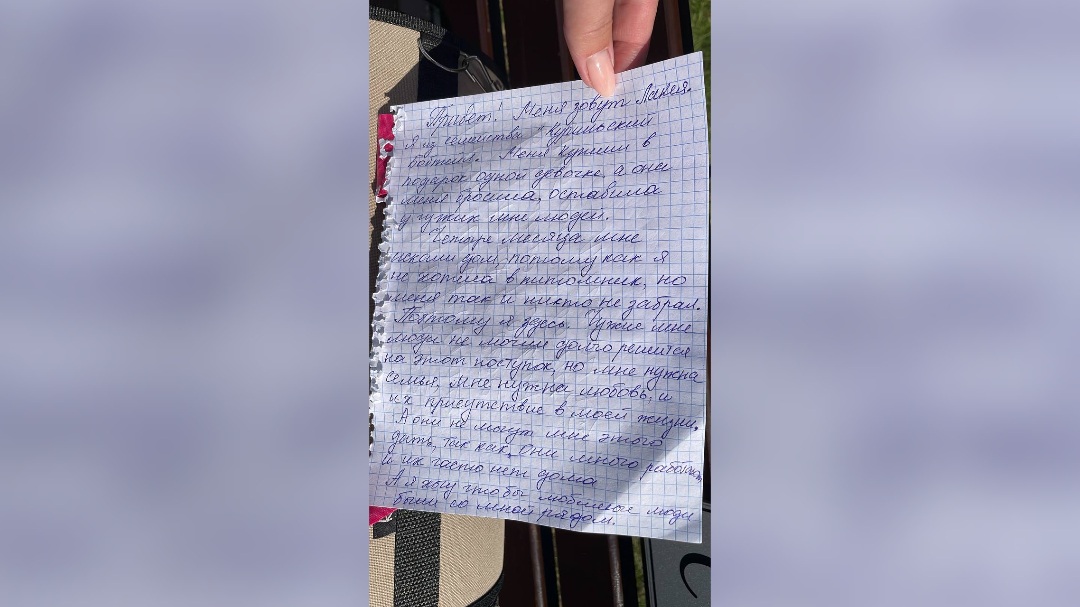 Привет! Меня зовут Лакея.
Я из семейства курильский
бобтейл. Меня купили в
подарок одной девочке, а она
меня бросила, оставила
у чужих мне людей.
Четыре месяца мне
искали дом, потому как я
не хотела в питомник, но
меня так и никто не забрал.
Поэтому я здесь. Чужие мне
люди не могли долго решится
на этот поступок, но мне нужна
семья, мне нужна любовь, и
их присутствие в моей жизни.
А они не могут мне этого
дать, так как они много работают
и их часто нет дома
А я хочу чтобы любимые люди
были со мной рядом.